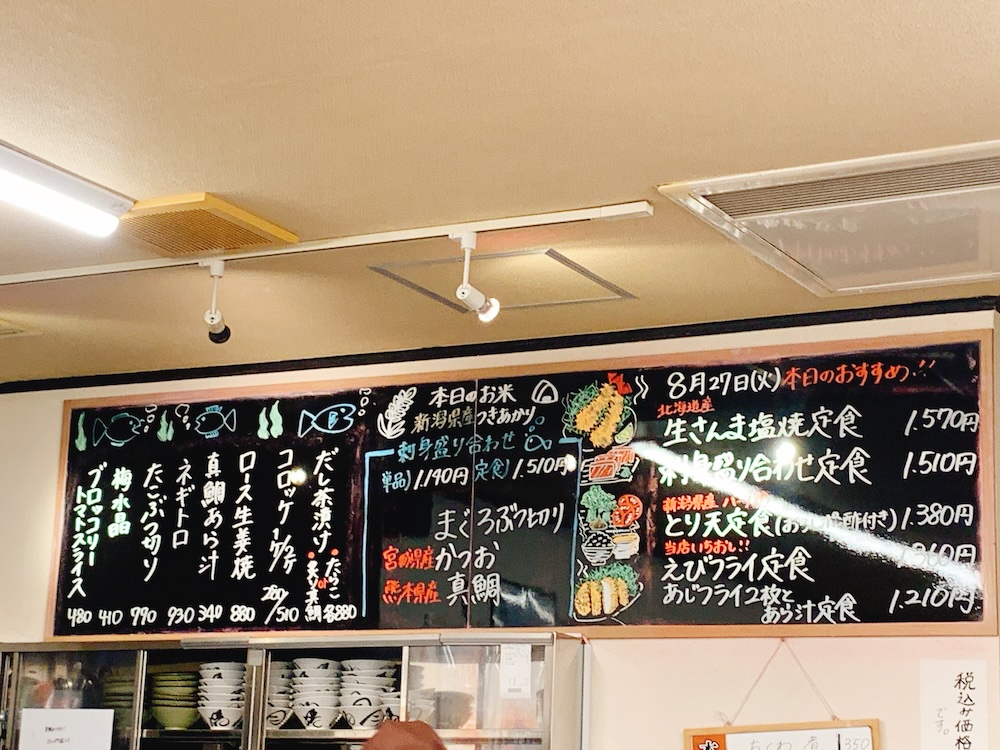 8月27日(火)本日のおすすめ!!
北海道産
生さんま塩焼定食 1.570円
刺身盛り合わせ定食 1.510円
新潟県産
とり天定食(おろしポン酢付き) 1.380円
当店いちおし!!
えびフライ定食
あじフライ2枚と
あら汁定食 1.210円
本日のお米
新潟県産つきあかり
刺身盛り合わせ
単品)1.190円 定食)1.510円
まぐろぶつ切り
宮城県産かつお
熊本県産 真鯛
だし茶漬け・たらこ
or真鯛 各880
コロッケ 1ケ/2ケ 260/510
ロース生姜焼 880
真鯛あら汁 340
ネギトロ 930
たこぶつ切り 790
梅水晶 410
ブロッコリー
トマトスライス 480
税込み価格
です。
350